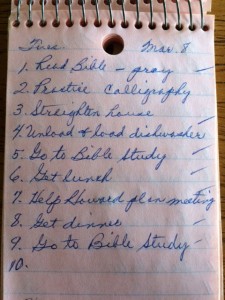 Tues Mar. 8
1. Read Bible - pray
2. Practice Calligraphy
3. Straighten house
4. Unload & load dishwasher
5. Go to Bible Study
6. Get lunch
7. Help Howard plan meeting
8. Get dinner
9. Go to Bible Study
10.